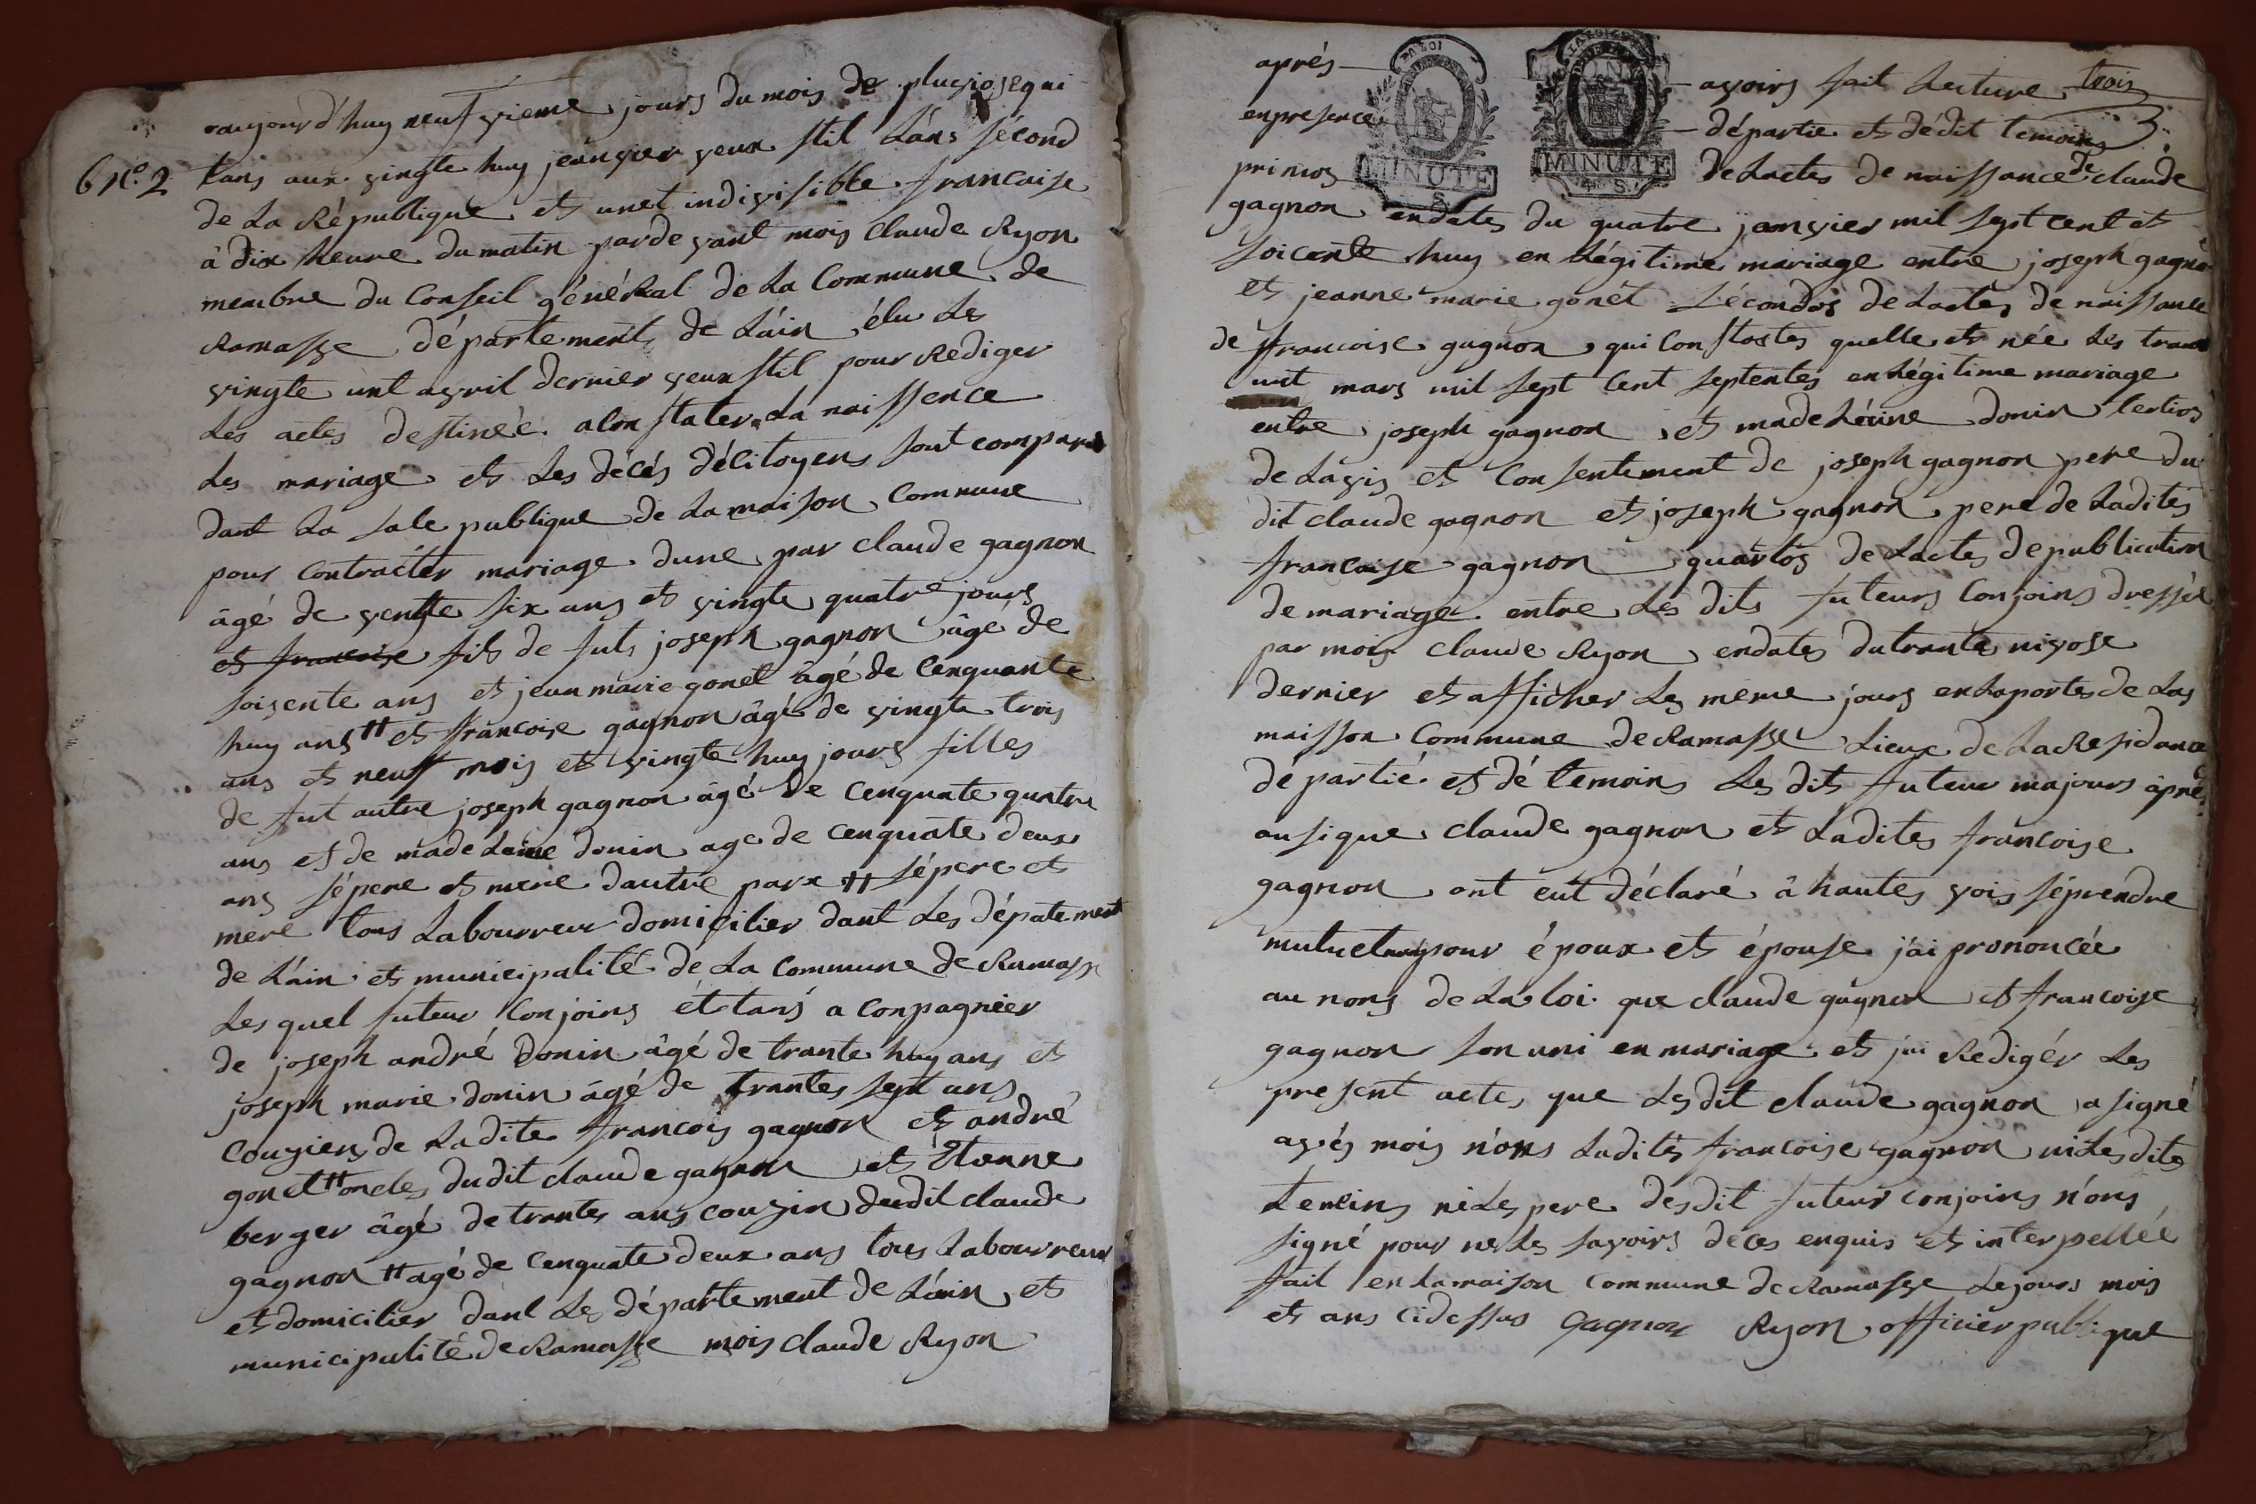 aujourd'huy neufvieme jours du mois de pluviose qui
6 N.° 2 tans aux vingte huy jeanvier veux stil L'ans sécond
de La République et unet indivisible francaise
à dix heure du matin pardevant mois Claude Ryon
membre du Conseil général de La Commune de
Ramasse département de L'ain élu Le
vingte unt avril dernier veux stil pour Rediger
Les actes destinée a constater La naissence
Les mariage et Les décés décitoyens sont compara
dant La sale publique de La maison Commune
pour Contracter mariage dune par Claude gagnon
âgé de vengte six ans et vingte quatre jours
et francoise fils de fut joseph gagnon âgé de
soisente ans et jean marie gonet âgé de Cenquante
huy ans # et francoise gagnon âgé de vingte trois
ans et neuff mois et vingte huy jours filles
de fut autre joseph gagnon âgé de Cenquate quatre
ans et de madeLaine donin age de Cenquate deux
ans sépere et mere dautre parx # sépere et
mere tous Labourreur domicilier dant Les dépatement
de L'ain et municipalité de La Commune de Ramasse
Les quel futeur Conjoins éttans a Conpagnier
de joseph andré donin âgé de trante huy ans et
joseph marie donin âgé de trantes sept ans
Couziens de Ladite francois gagnon et andré
gonet # oncles dudit claude gagnon et Etienne
berger âgé de trantes ans couzin dudit claude
gagnon # agé de Cenquate deux ans tous Labourreur
et domicilier dant Le département de L'ain et
municipalité de Ramasse mois Claude Ryon
aprés avoirs fait Lecture trois
enpresence départie et dédit temoins 3
primos de Lactes de naissance de claude
gagnon endates du quatre janvier mil sept cent et
soicente huy en Légitime mariage entre joseph gagnon
et jeanne marie gonet sécondos de Lactes de naissance
de francoise gagnon qui Constostes quelle et née Les trante
unt mars mil sept Cent septentes en Légitime mariage
entre joseph gagnon et madeLéine donin tertios
de Lavis et Consentement de joseph gagnon pere du
dit claude gagnon et joseph gagnon pere de Ladites
francoise gagnon quartos de Lactes de publication
de mariage entre Les dits futeurs Conjoins dressér
par mois Claude Ryon endates dutrante nivose
dernier et afficher Les meme jours en Laportes de Las
maisson Commune de Ramasse Lieux de La Residance
départié et dé temoins Les dits futeur majours aprer
ausique claude gagnon et Ladites francoise
gagnon ont eut déclaré à hautes vois séprendre
mutuetmay pour époux et épouse j'ai prononcée
au noms de La loi que claude gagnon et francoise
gagnon sonuni en mariage et jai Redigér Les
present actes que Lesdit claude gagnon a signé
avés mois n'ons Ladites francoise gagnon ni Lesdits
temoins ni Les pere desdit futeur conjoins n'ons
signé pour ne Les savoirs deces enquis et interpellée
fait en La maison Commune de Ramasse Lejours mois
et ans cidessus gagnon Ryon officier publique
LA LOI
MINUTE
4 S.
MINUTE